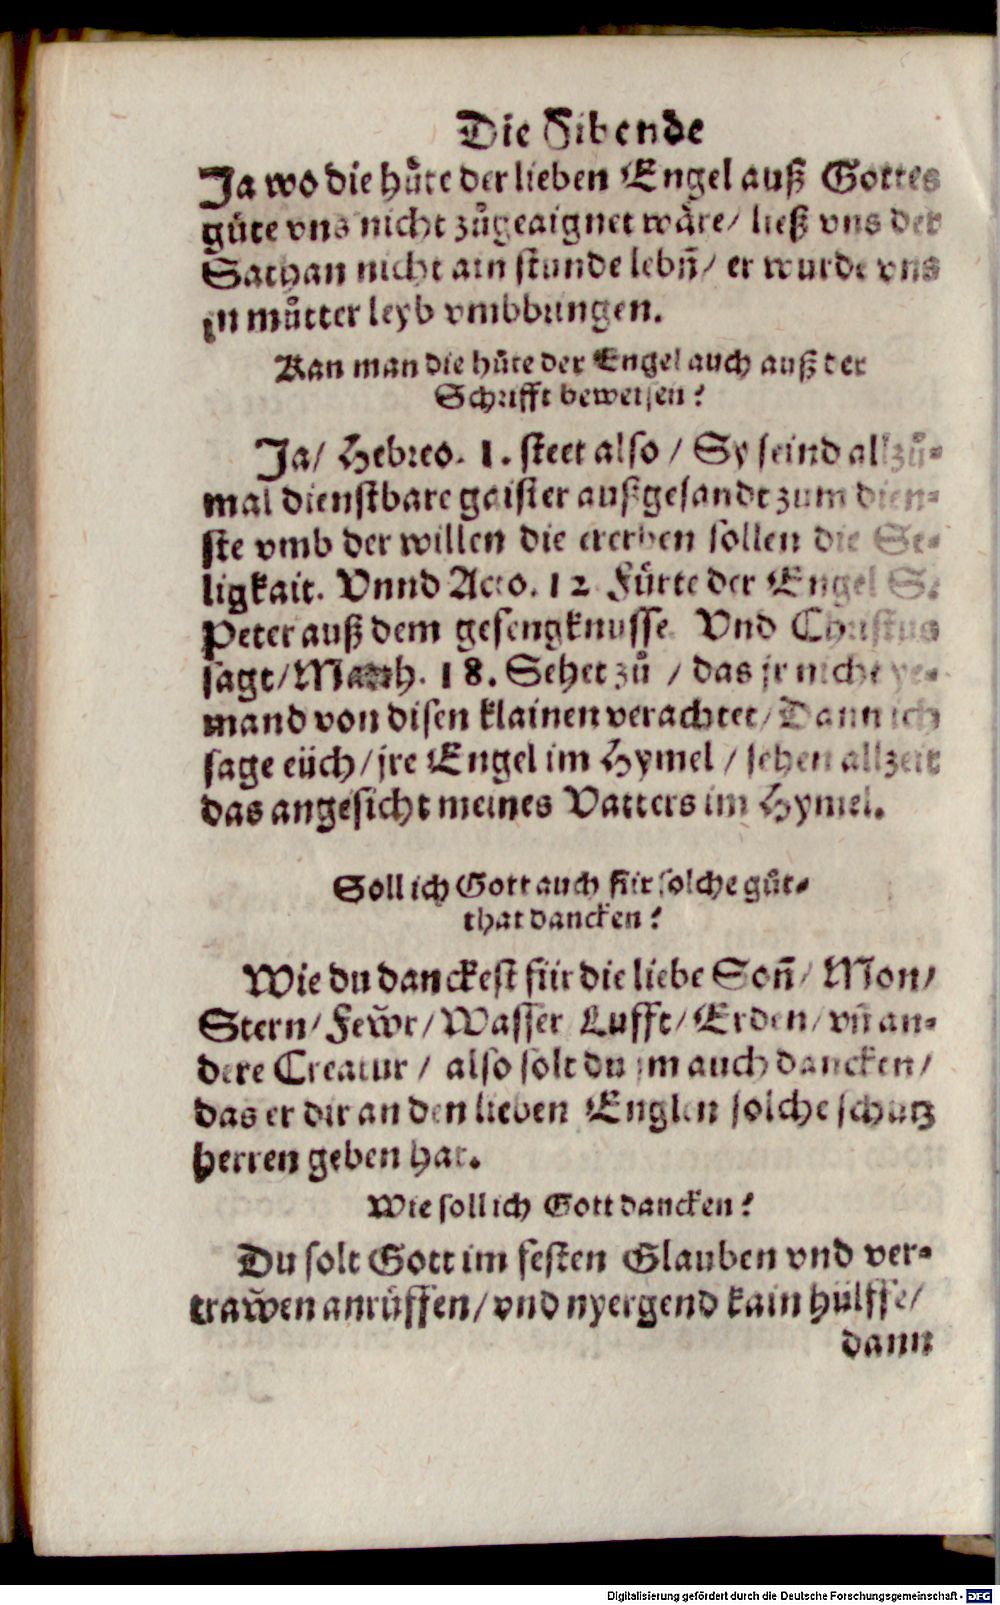 Die Sibende
Ja wo die hůte der lieben Engel auß Gottes
gůte vns nicht zůgeaignet wåre / ließ vns der
Sathan nicht ain stunde lebn̄ / er wurde vns
in můtter leyb vmbbringen.
Kan man die hůte der Engel auch auß der
Schrifft beweisen?
Ja / Hebreo. 1. steet also / Sy seind allzů-
mal dienstbare gaister außgesandt zum dien-
ste vmb der willen die ererben sollen die Se-
ligkait. Vnnd Acto. 12 Fůrte der Engel S.
Peter auß dem gefengknusse. Vnd Christus
sagt / Matth. 18. Sehet zů / das jr nicht ye-
mand von disen klainen verachtet / Dann ich
sage eüch / jre Engel im Hymel / sehen allzeit
das angesicht meines Vatters im Hymel.
Soll ich Gott auch für solche gůt-
that dancken?
Wie du danckest für die liebe Son̄ / Mon /
Stern / Fewr / Wasser Lufft / Erden / vn̄ an-
dere Creatur / also solt du jm auch dancken /
das er dir an den lieben Englen solche schutz
herren geben hat.
Wie soll ich Gott dancken?
Du solt Gott im festen Glauben vnd ver-
trawen anrůffen / vnd nyergend kain hülffe /
dann
Digitalisierung gefördert durch die Deutsche Forschungsgemeinschaft - DFG